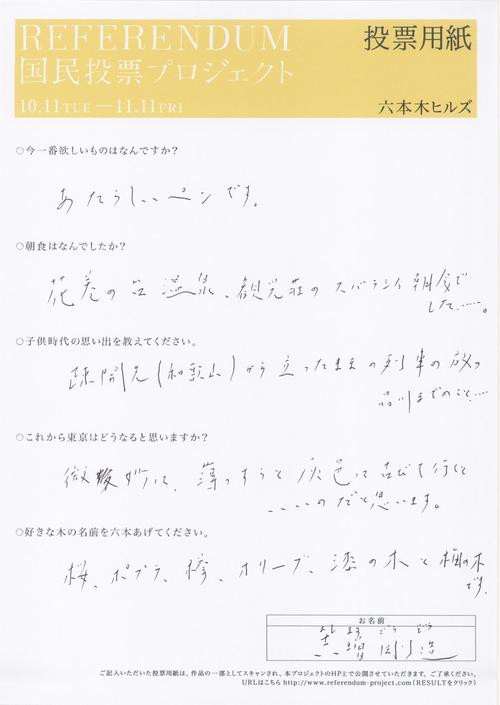 REFERENDUM
国民投票プロジェクト
10.11TUE—11.11FRI
投票用紙
六本木ヒルズ
○今一番欲しいものはなんですか?
あたらしいペンです。
○朝食はなんでしたか?
花巻の台温泉、観光荘のスバラシイ朝食で
した……。
○子供時代の思い出を教えてください。
疎開先(和歌山)から立ったままの列車の旅の
品川までのこと…。
○これから東京はどうなると思いますか?
微妙に、薄っすらと灰色に古びて行くと
、、、、のだと思います。
○好きな木の名前を六本あげてください。
桜、ポプラ、欅、オリーブ、漆の木と梅の木
です。
お名前
よします ごう ぞう
吉増剛造
ご記入いただいた投票用紙は、作品の一部としてスキャンされ、本プロジェクトのHP上で公開させていただきます。ご了承ください。
URLはこちら http://www.referendum-project.com(RESULTをクリック)